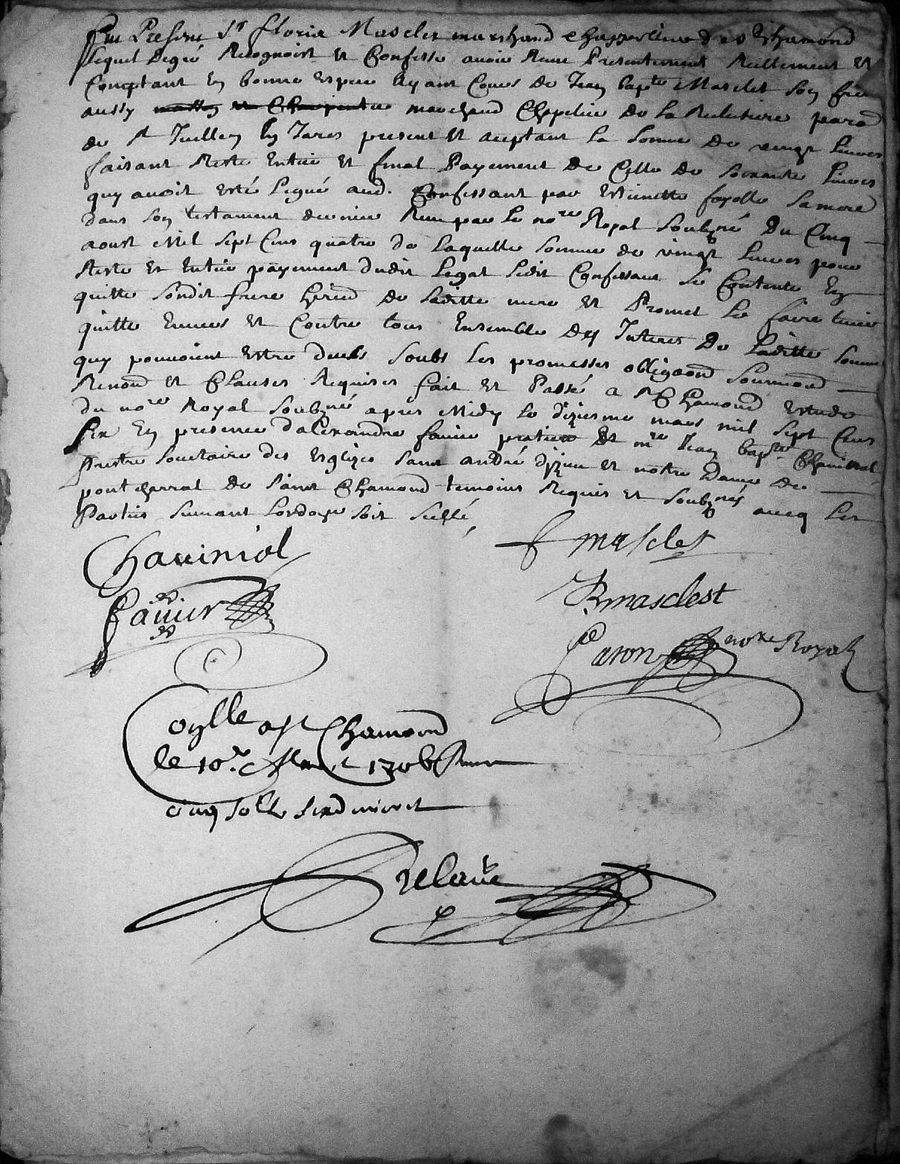 Fut Present Sr floris Masclet marchand Chappelier de st Chamond
lequel degré Recognoist et Confesse avoir Reçeu Presentement Reellement et
Comptant En bonne Espece Ayant Cours de Jean bapte Masclet son frere
aussy marchand Chapelier de La Ruletiere parr
de st Jullien En Jares present et aceptant La Somme de vingt Livres
faisant Reste Entier et final Payement de Celle de soixante Livres
quy avoit esté Legué aud. Confessant par Estiennette fayolle sa mere
dans son testament dernier Reçeu par Le nore Royal soubzné du Cinq
aoust Mil sept Cens quatre de Laquelle somme de vingt Livres pour
Reste et Entier payement dudit Legat Ledit Confessant se Contente En
quitte sondit frere herité de Laditte mere et Promet Le faire tenir
quitte Envers et Contre tous Ensemble des Interes de Laditte somme
quy pouvoient Estre deubs soubs Les promesses obligaons soumond
Renond et Clauses Requises fait et Passé a st Chamond Estude
du nore Royal soubzné apres Midy Le dixiesme mars mil sept Cens
six En presence d'alexandre favier praticn et mre Jean bapte Chaviniol
prestre soucitaire des Esglizes saint andré d'izieu et nostre Dame de
pontcharral de saint Chamond temoins Requis et soubznés avecq Les
Parties suivant Lordonce soit scellé
Chaviniol
f masclet
favier
B masclest
Paron nore Royal
Conlle a st Chamond
le 10e Mars 1706 Reçeu
cinq solz six deniers
Relave